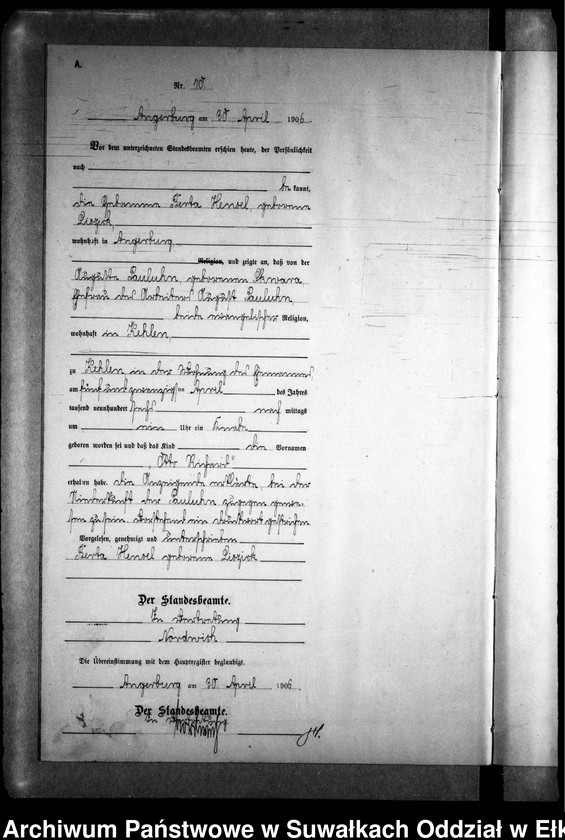 A.
Nr. 70
Angerburg am 30 April 1906
Vor dem unterzeichneten Standesbeamten erschien heute, der Persönlichkeit
nach
be kannt,
die Hebamme Berta Hensel, geborene
wohnhaft in Angerburg,
Religion, und zeigte an, daß von der
Auguste Pauluhn, geborenen Skwara,
Ehefrau des Arbeiters August Pauluhn,
beide evangelischer Religion,
wohnhaft in Kehlen,
zu Kehlen, in der Wohnung des Ehemannes,
am fünfundzwanzigsten April des Jahres
tausend neunhundert sechs nach mittags
um ein Uhr ein Knabe
geboren worden sei und daß das Kind die Vornamen
Otto Richard
erhalten habe. Die Anzeigende erklärte, bei der
Niederkunft der Pauluhn zugegen gewe-
sen zu sein. Vorstehend ein Druckwort gestrichen.
Vorgelesen, genehmigt und unterschrieben
Berta Hensel geborene
Der Standesbeamte.
In Vertretung
Nordwich
Die Übereinstimmung mit dem Hauptregister beglaubigt.
Angerburg am 30. April 1906.
Der Standesbeamte.
In Vertretung
Archiwum Państwowe w Suwałkach Oddział w Ełk